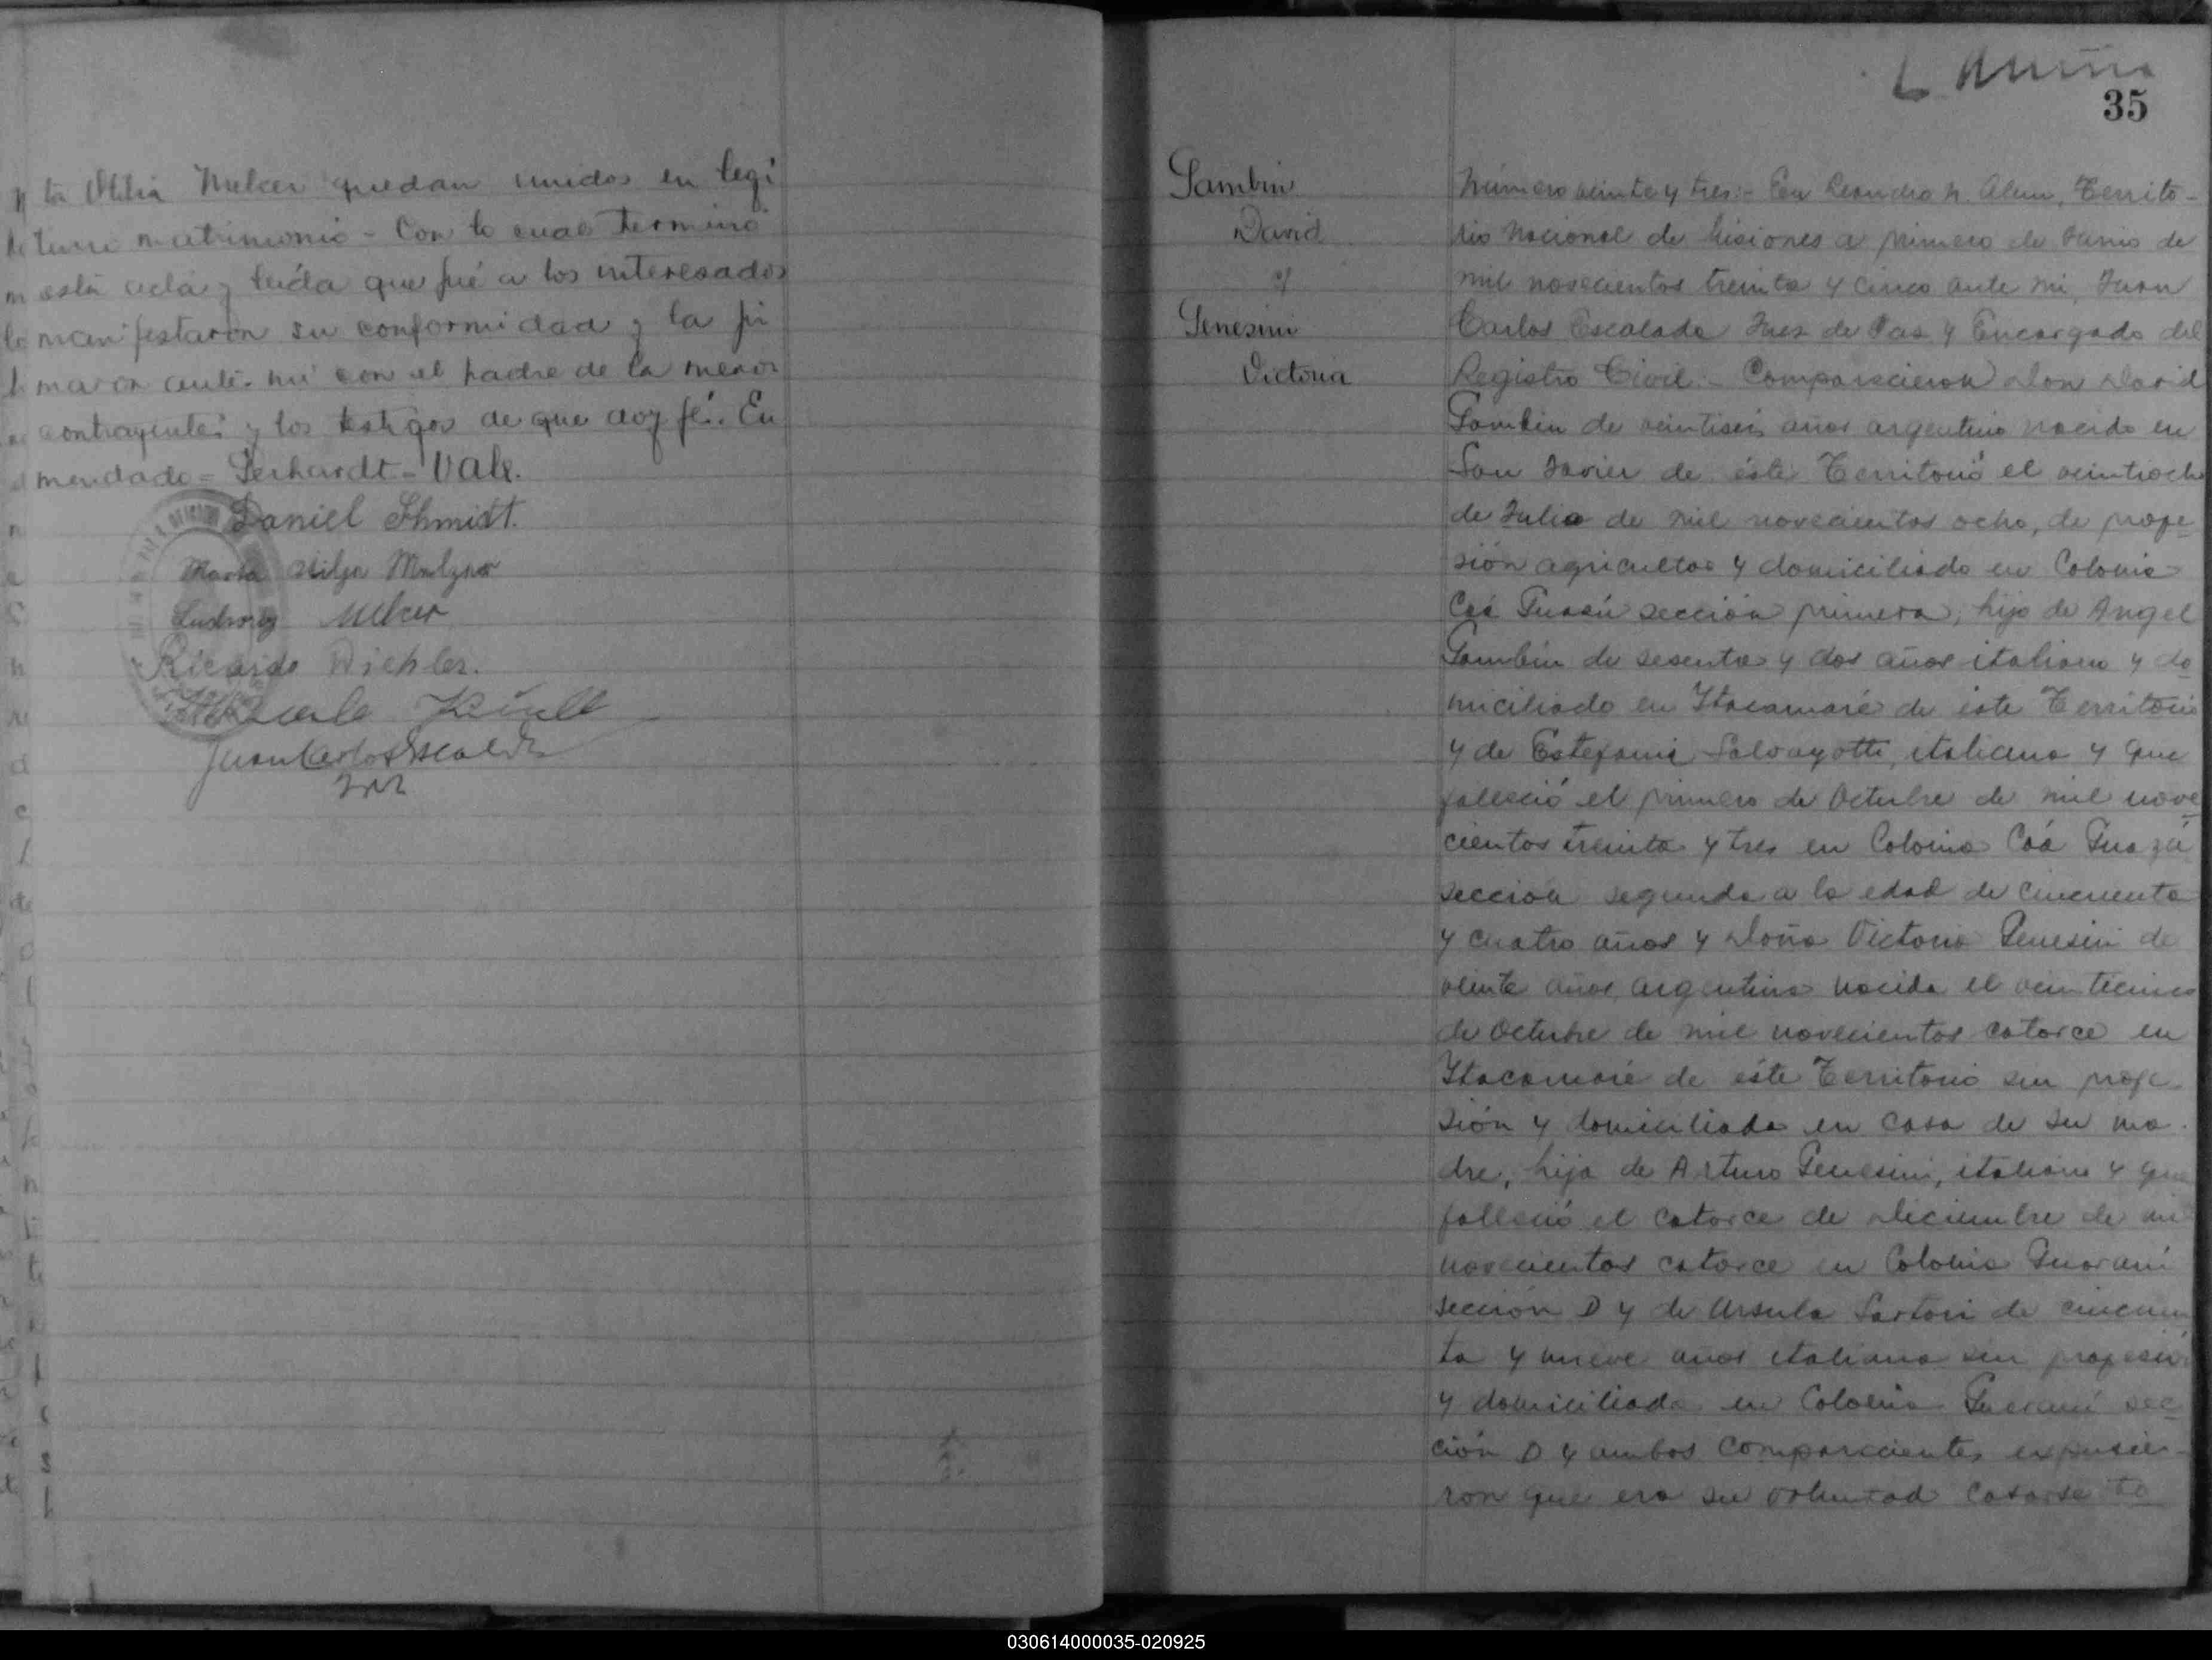 ta Otilia Melcer quedan unidos en legi
timo matrimonio - Con lo cual terminó
esta acta y leída que fué a los interesados
manifestaron su conformidad y la fir
maron ante mi con el padre de la menor
contrayente y los testigos de que doy fé. En
mendado = Gerhardt - Vale.
Daniel Shmidt.
Marta
Ludwig Melcer
Ricardo
Juan Carlos Escalada
35
Gambin
David
y
Genesini
Victoria
Número veinte y tres:- En Leandro N. Alem, Territo-
rio Nacional de Misiones a primero de Junio de
mil novecientos treinta y cinco ante mi, Juan
Carlos Escalada Juez de Paz y Encargado del
Registro Civil.- Comparecieron Don David
Gambin de veintiseis años argentino nacido en
San Javier de éste Territorio el veintiocho
de Julio de mil novecientos ocho, de profe-
sión agricultor y domiciliado en Colonia
Caá Guasú sección primera, hijo de Angel
Gambin de sesenta y dos años italiano y do-
miciliado en Itacaruaré de éste Territorio
y de Estefania italiana y que
falleció el primero de Octubre de mil nove-
cientos treinta y tres en Colonia Caá Guazú
sección segunda a la edad de cincuenta
y cuatro años y Doña Victoria Genesini de
veinte años argentina nacida el veinticinco
de Octubre de mil novecientos catorce en
Itacaruaré de éste Territorio sin profe-
sión y domiciliada en casa de su ma-
dre, hija de Arturo Genesini, italiano y que
falleció el catorce de Diciembre de mil
novecientos catorce en Colonia Guaraní
sección D y de Ursula Sartori de cincuen
ta y nueve años italiana sin profesión
y domiciliada en Colonia Guaraní sec-
ción D y ambos comparecientes expusie-
ron que era su voluntad casarse
030614000035-020925